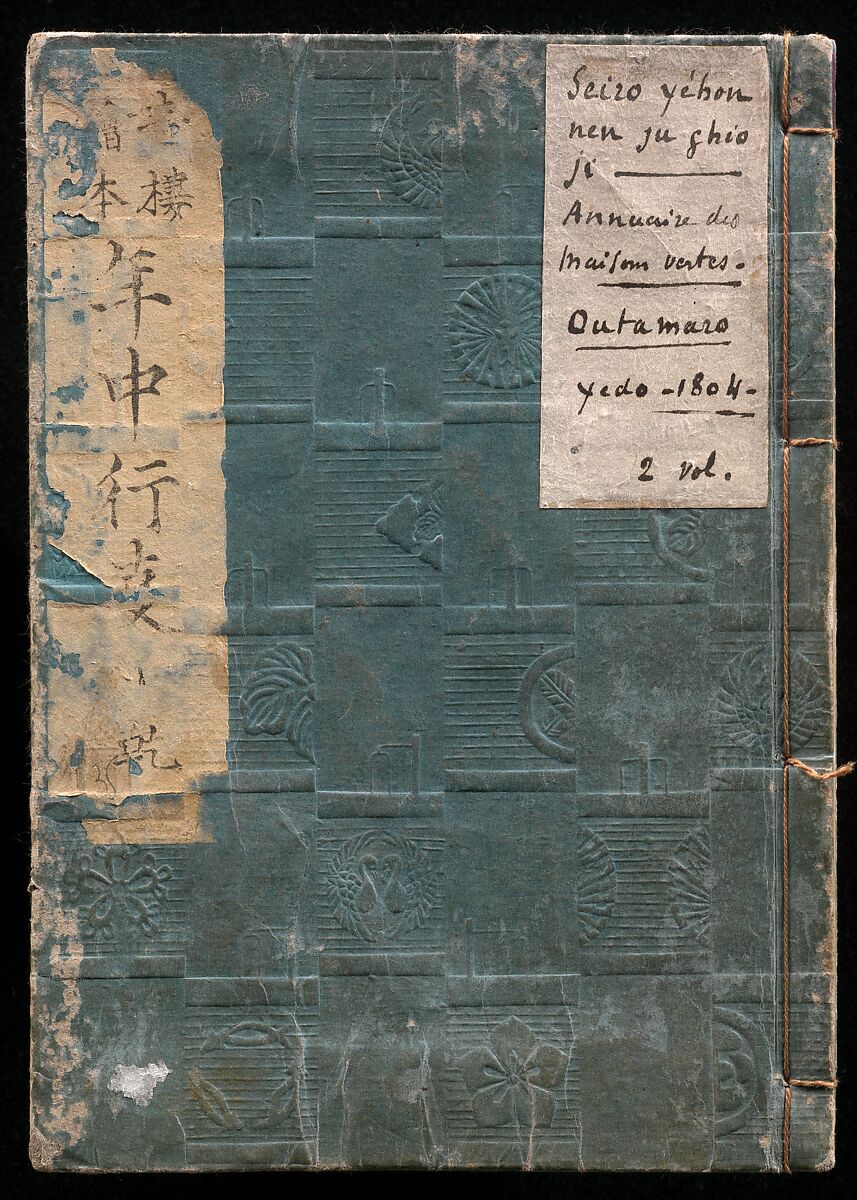 青樓
繪本
年中行叓 乾
Seiro yéhon
nen ju ghio
ji —
Annuaire des
Maisons vertes.
Outamaro
yedo - 1804 -
2 vol.